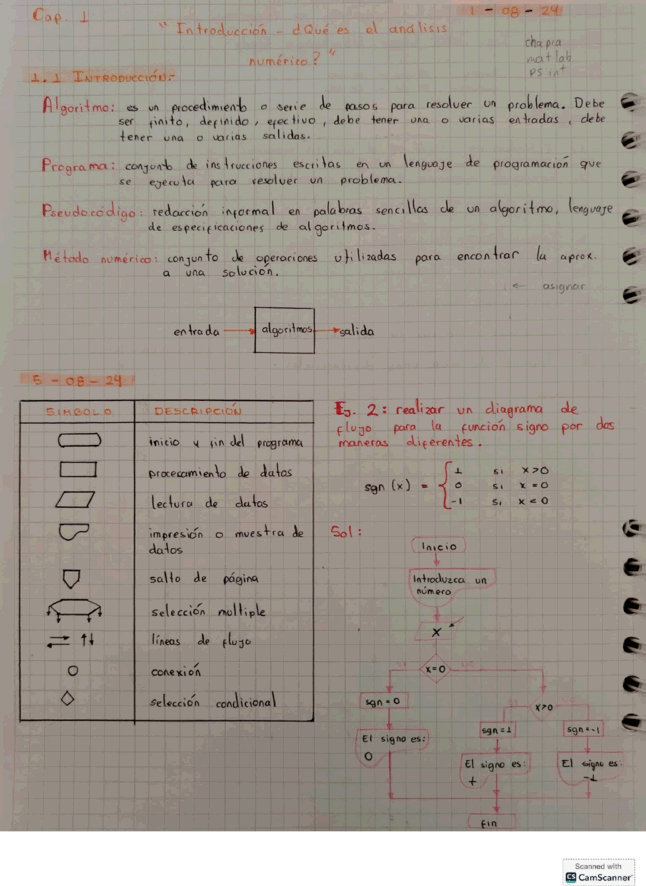 Cap. 1
1 - 08 - 24
" Introducción - ¿Qué es el análisis
numérico? "
chapra
matlab
PS int
1.1 INTRODUCCIÓN:
Algoritmo: es un procedimiento o serie de pasos para resolver un problema. Debe
ser finito, definido, efectivo, debe tener una o varias entradas, debe
tener una o varias salidas.
Programa: conjunto de instrucciones escritas en un lenguaje de programación que
se ejecuta para resolver un problema.
Pseudocódigo: redacción informal en palabras sencillas de un algoritmo, lenguaje
de especificaciones de algoritmos.
Método numérico: conjunto de operaciones utilizadas para encontrar la aprox.
a una solución.
← asignar
entrada → algoritmos → salida
5 - 08 - 24
SIMBOLO DESCRIPCIÓN
inicio y fin del programa
procecamiento de datos
lectura de datos
impresión o muestra de
datos
salto de página
selección multiple
líneas de flujo
conexión
selección condicional
Ej. 2: realizar un diagrama de
flujo para la función signo por dos
maneras diferentes.
sgn (x) = { 1 si x>0
0 si x=0
-1 si x<0
Sol:
Inicio
Introduzca un
número
X
x=0
sgn=0
x>0
sgn=1
sgn=-1
El signo es:
0
El signo es:
+
El signo es:
-1
Fin
Scanned with
CS CamScanner